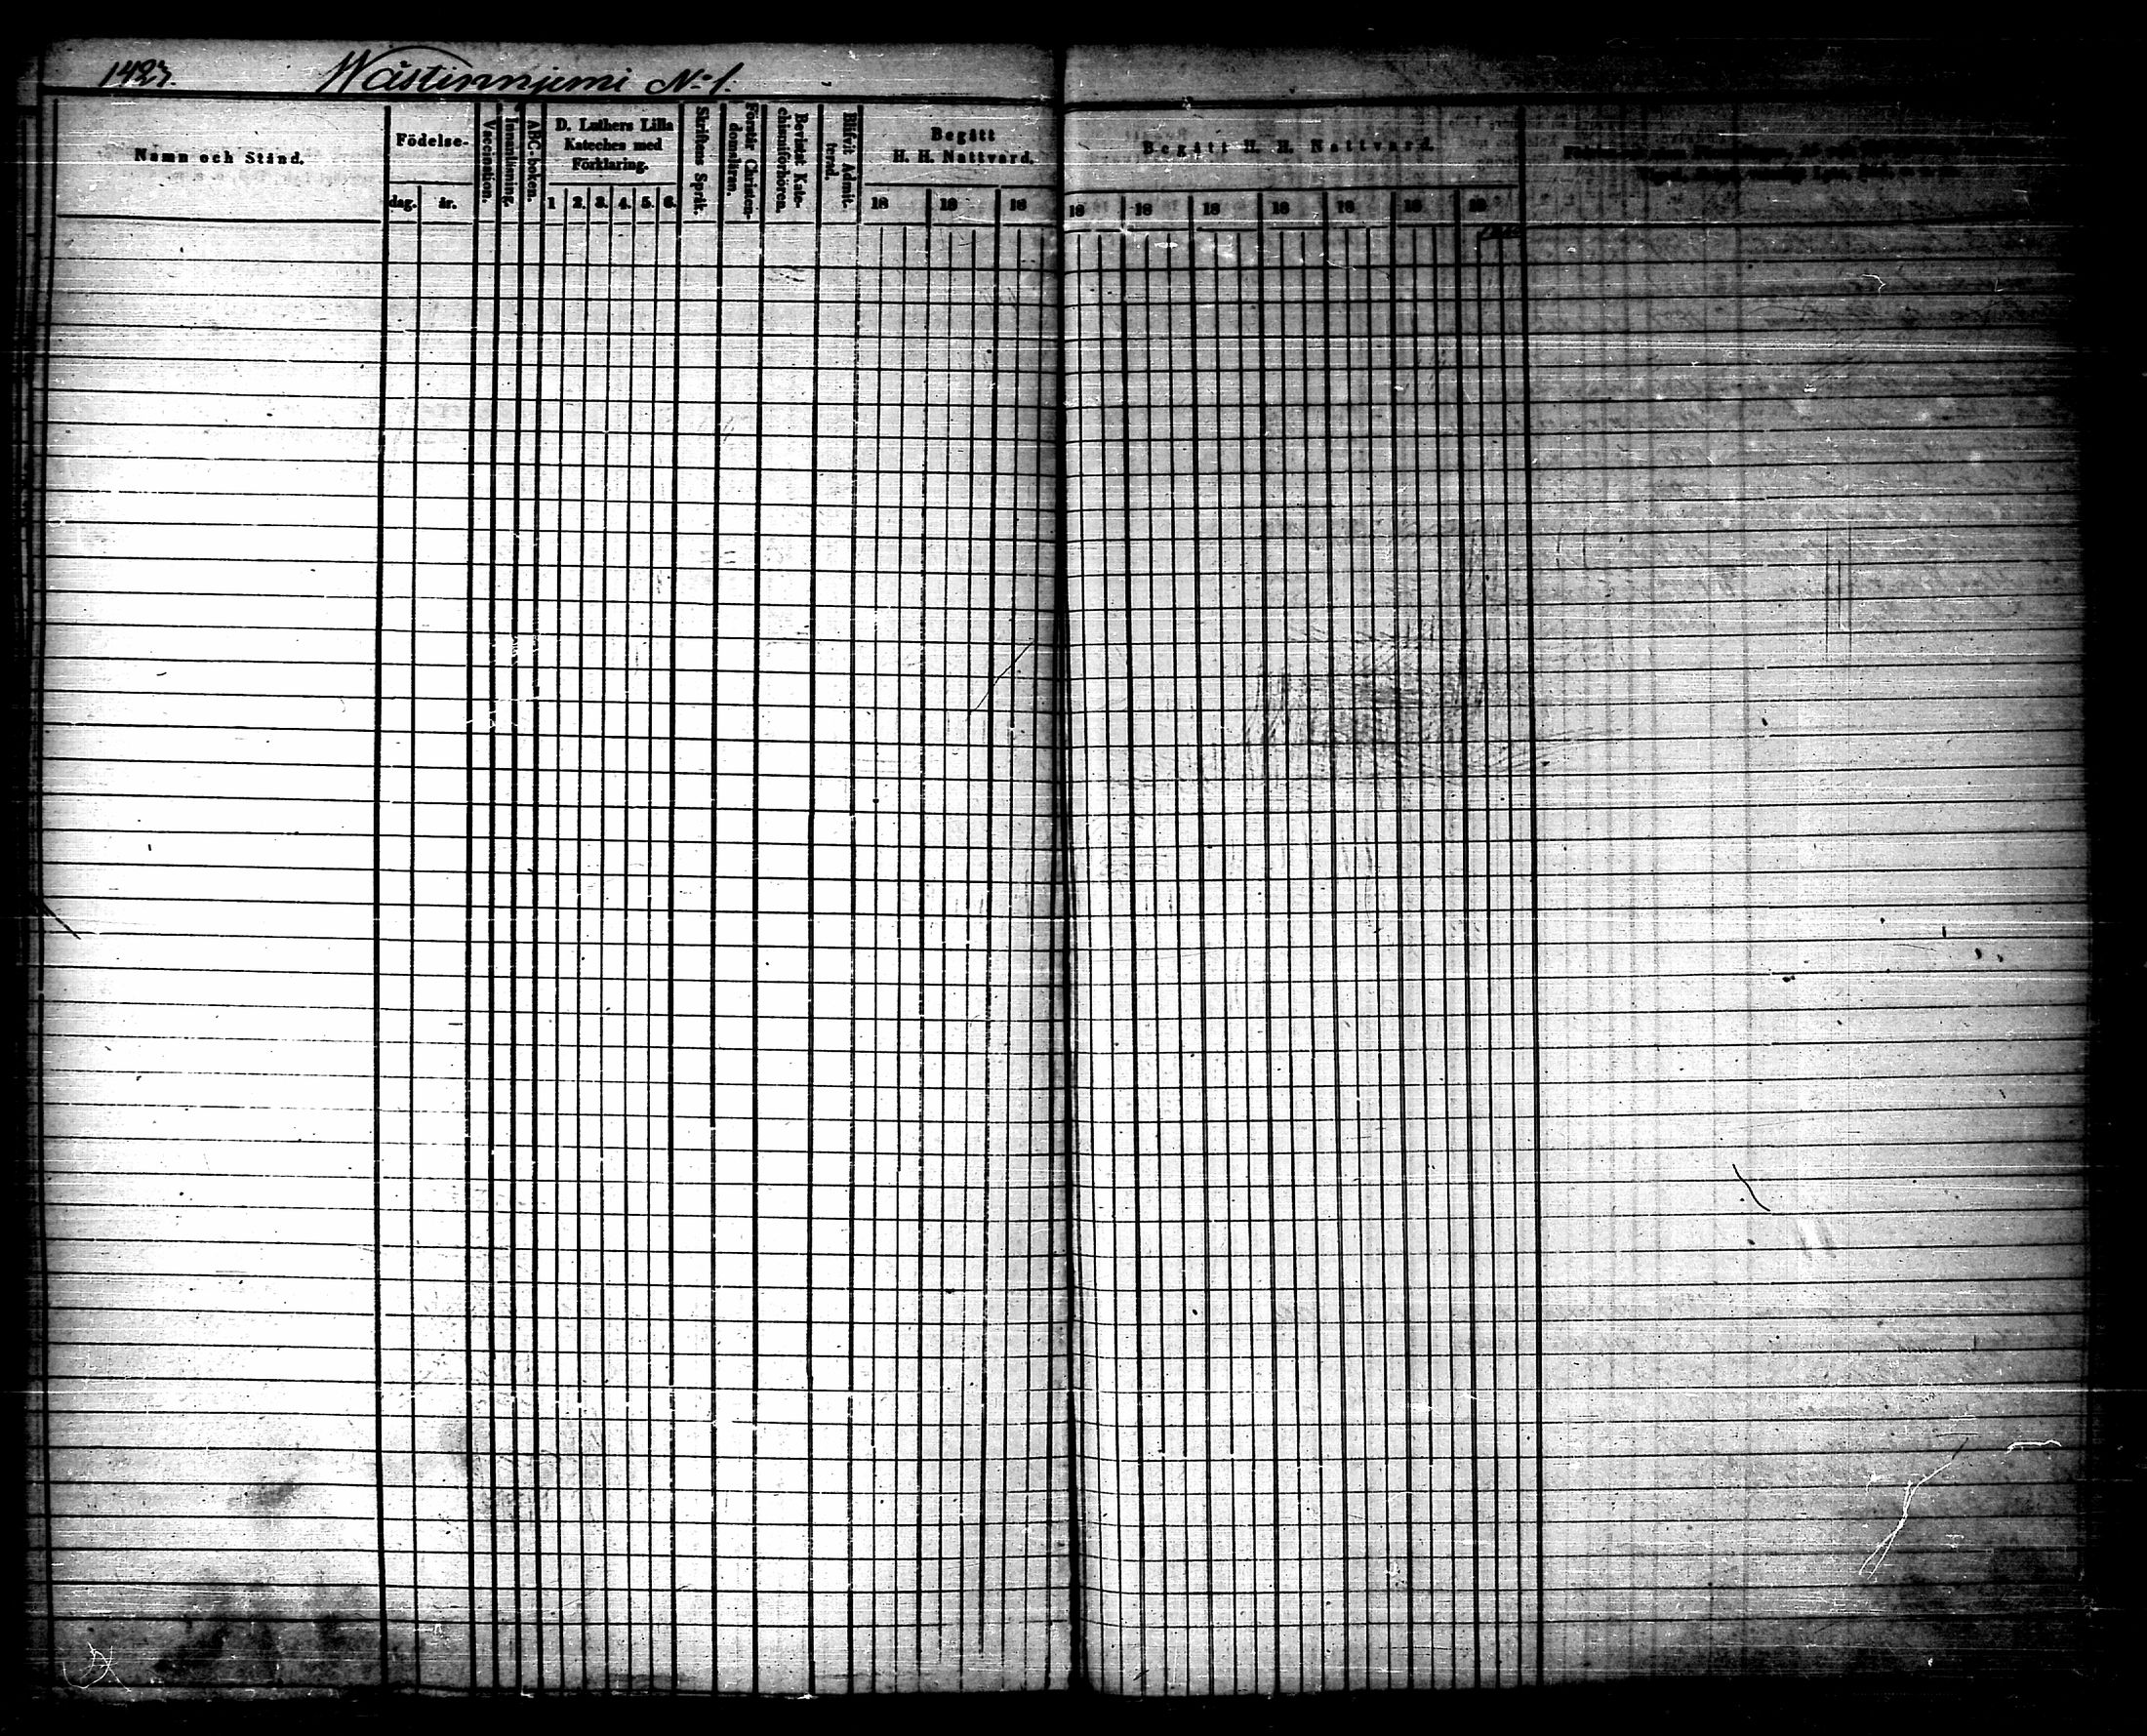 1423. Wästinnjemi No 1.
Namn och Stånd.
Födelse-
dag. år.
Vaccination.
Innanläsning.
ABC-boken.
D. Luthers Lilla
Kateches med
Förklaring.
1 2. 3. 4. 5. 6.
Skriftens Språk.
Förstår Christen-
domsläran.
Bevistat Kate-
chismiförhören.
Blifvit Admit-
terad.
Begått
H. H. Nattvard.
18 18 18
Begått H. H. Nattvard.
18 18 18 18 18 18 18